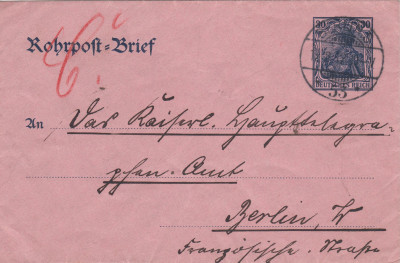 Rohrpost=Brief
30 30
DEUTSCHES REICH
35
An Das Kaiserl. Haupttelegra-
phen-Amt
Berlin, W
Französische-Straße